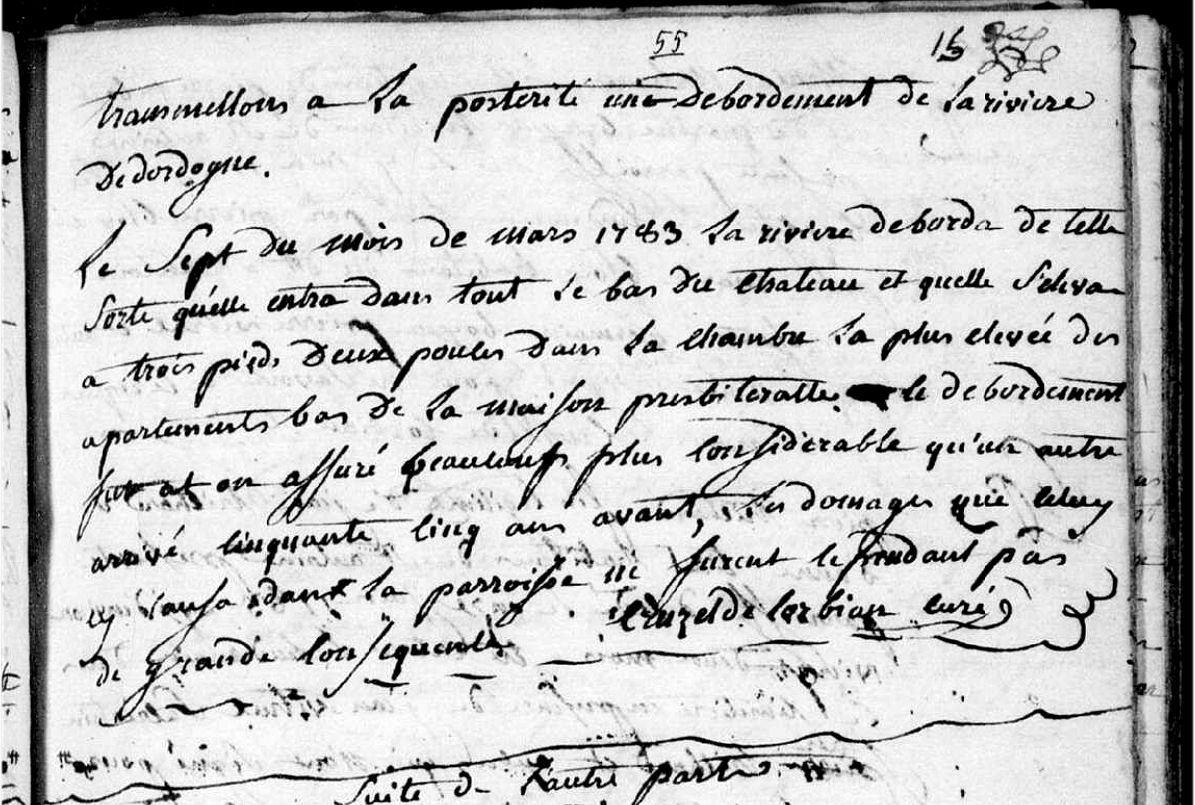 55
15
transmettons a La posterité une Debordement de La riviere
De dordogne.
Le Sept du mois de mars 1783 La riviere deborda de telle
Sorte qu'elle entra dans tout Le bas du Chateau et quelle S'eleva
a trois pieds Deux pouces Dans La Chambre La plus elevée des
apartements bas De La maison presbiteralle le debordement
fut at on assuré beaucoup plus Considerable qu'un autre
arrivé Cinquante Cinq ans avant, Les domages que Celuy
cy Causa dans la parroisse ne furent Cependant pas
de grande Consequence. Cruzel de Corbian Curé
Suite de L'autre part